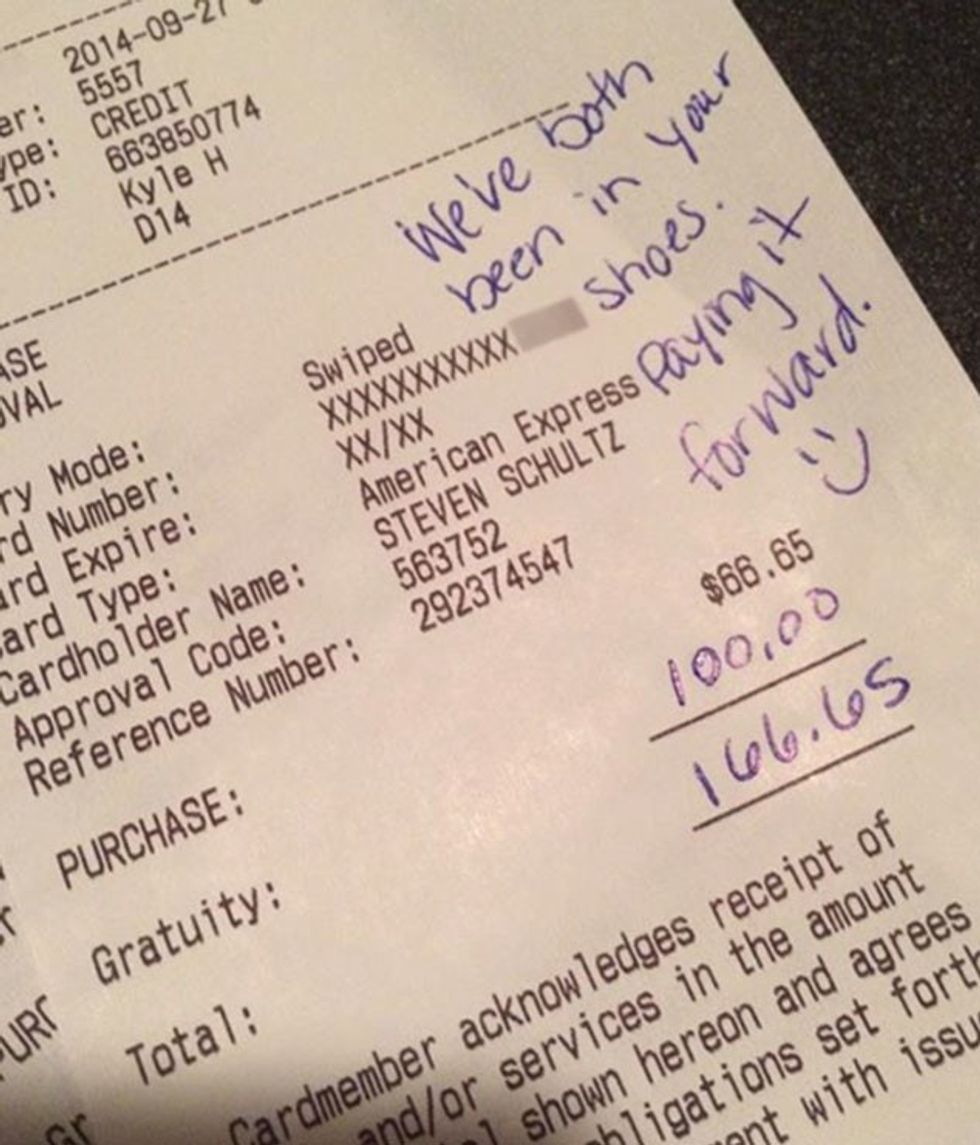 2014-09-27
er: 5557
ype: CREDIT
ID: 663850774
Kyle H
D14
We've both
been in your
shoes.
Paying it
forward.
:)
ASE
OVAL
ry Mode: Swiped
rd Number: XXXXXXXXXXX
ard Expire: XX/XX
ard Type: American Express
Cardholder Name: STEVEN SCHULTZ
Approval Code: 563752
Reference Number: 292374547
PURCHASE: $66.65
Gratuity: 100.00
Total: 166.65
Cardmember acknowledges receipt of
and/or services in the amount
shown hereon and agrees
bligations set forth
ent with issu